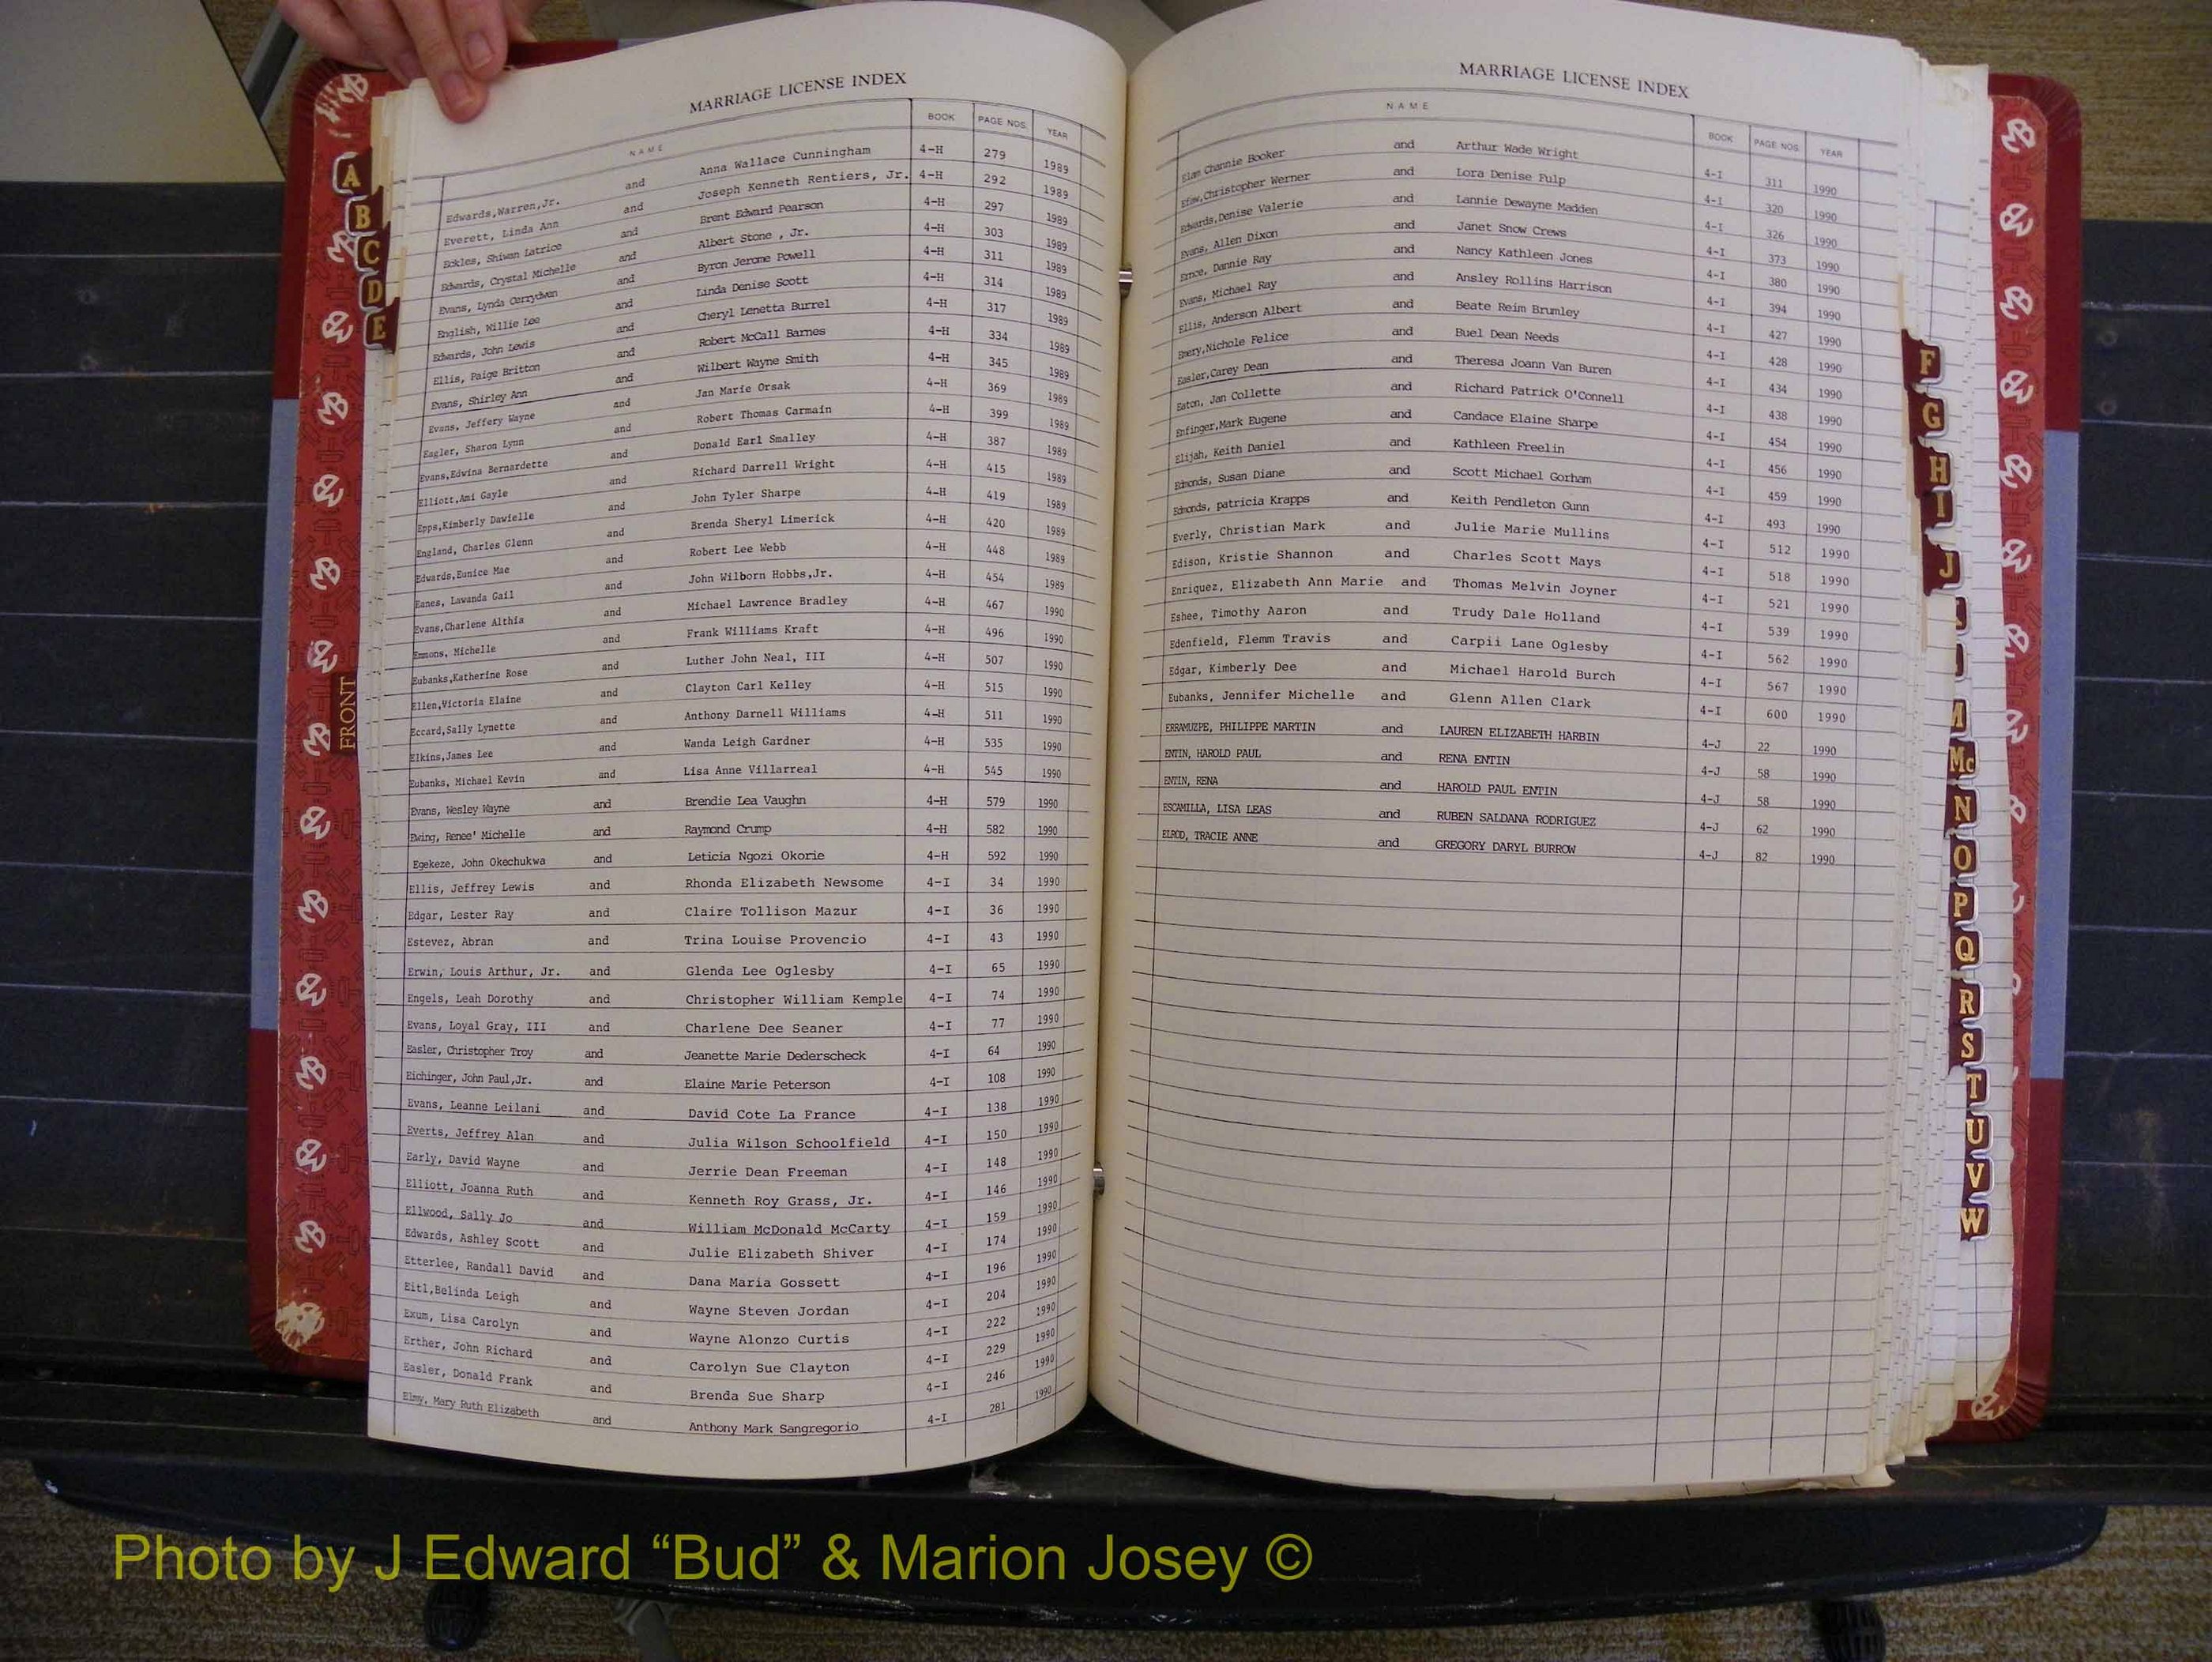 MARRIAGE LICENSE INDEX
NAME BOOK PAGE NOS. YEAR
Edwards,Warren,Jr. and Anna Wallace Cunningham 4-H 279 1989
Everett, Linda Ann and Joseph Kenneth Rentiers, Jr. 4-H 292 1989
Eckles, Shiwan Latrice and Brent Edward Pearson 4-H 297 1989
Edwards, Crystal Michelle and Albert Stone , Jr. 4-H 303 1989
Evans, Lynda Cerrydwen and Byron Jerome Powell 4-H 311 1989
English, Willie Lee and Linda Denise Scott 4-H 314 1989
Edwards, John Lewis and Cheryl Lenetta Burrel 4-H 317 1989
Ellis, Paige Britton and Robert McCall Barnes 4-H 334 1989
Evans, Shirley Ann and Wilbert Wayne Smith 4-H 345 1989
Evans, Jeffery Wayne and Jan Marie Orsak 4-H 369 1989
Eagler, Sharon Lynn and Robert Thomas Carmain 4-H 399 1989
Evans,Edwina Bernardette and Donald Earl Smalley 4-H 387 1989
Elliott,Ami Gayle and Richard Darrell Wright 4-H 415 1989
Epps,Kimberly Dawielle and John Tyler Sharpe 4-H 419 1989
England, Charles Glenn and Brenda Sheryl Limerick 4-H 420 1989
Edwards,Eunice Mae and Robert Lee Webb 4-H 448 1989
Eanes, Lawanda Gail and John Wilborn Hobbs,Jr. 4-H 454 1989
Evans,Charlene Althia and Michael Lawrence Bradley 4-H 467 1990
Emmons, Michelle and Frank Williams Kraft 4-H 496 1990
Eubanks,Katherine Rose and Luther John Neal, III 4-H 507 1990
Ellen,Victoria Elaine and Clayton Carl Kelley 4-H 515 1990
Eccard,Sally Lynette and Anthony Darnell Williams 4-H 511 1990
Elkins,James Lee and Wanda Leigh Gardner 4-H 535 1990
Eubanks, Michael Kevin and Lisa Anne Villarreal 4-H 545 1990
Evans, Wesley Wayne and Brendie Lea Vaughn 4-H 579 1990
Ewing, Renee' Michelle and Raymond Crump 4-H 582 1990
Egekeze, John Okechukwa and Leticia Ngozi Okorie 4-H 592 1990
Ellis, Jeffrey Lewis and Rhonda Elizabeth Newsome 4-I 34 1990
Edgar, Lester Ray and Claire Tollison Mazur 4-I 36 1990
Estevez, Abran and Trina Louise Provencio 4-I 43 1990
Erwin, Louis Arthur, Jr. and Glenda Lee Oglesby 4-I 65 1990
Engels, Leah Dorothy and Christopher William Kemple 4-I 74 1990
Evans, Loyal Gray, III and Charlene Dee Seaner 4-I 77 1990
Easler, Christopher Troy and Jeanette Marie Dederscheck 4-I 64 1990
Eichinger, John Paul,Jr. and Elaine Marie Peterson 4-I 108 1990
Evans, Leanne Leilani and David Cote La France 4-I 138 1990
Everts, Jeffrey Alan and Julia Wilson Schoolfield 4-I 150 1990
Early, David Wayne and Jerrie Dean Freeman 4-I 148 1990
Elliott, Joanna Ruth and Kenneth Roy Grass, Jr. 4-I 146 1990
Ellwood, Sally Jo and William McDonald McCarty 4-I 159 1990
Edwards, Ashley Scott and Julie Elizabeth Shiver 4-I 174 1990
Etterlee, Randall David and Dana Maria Gossett 4-I 196 1990
Eitl,Belinda Leigh and Wayne Steven Jordan 4-I 204 1990
Exum, Lisa Carolyn and Wayne Alonzo Curtis 4-I 222 1990
Erther, John Richard and Carolyn Sue Clayton 4-I 229 1990
Easler, Donald Frank and Brenda Sue Sharp 4-I 246 1990
Elmy, Mary Ruth Elizabeth and Anthony Mark Sangregorio 4-I 281 1990
MARRIAGE LICENSE INDEX
NAME BOOK PAGE NOS. YEAR
Elam Channie Booker and Arthur Wade Wright 4-I 311 1990
Efaw,Christopher Werner and Lora Denise Fulp 4-I 320 1990
Edwards,Denise Valerie and Lannie Dewayne Madden 4-I 326 1990
Evans, Allen Dixon and Janet Snow Crews 4-I 373 1990
Ernce, Dannie Ray and Nancy Kathleen Jones 4-I 380 1990
Evans, Michael Ray and Ansley Rollins Harrison 4-I 394 1990
Ellis, Anderson Albert and Beate Reim Brumley 4-I 427 1990
Emery,Nichole Felice and Buel Dean Needs 4-I 428 1990
Easler,Carey Dean and Theresa Joann Van Buren 4-I 434 1990
Eaton, Jan Collette and Richard Patrick O'Connell 4-I 438 1990
Enfinger,Mark Eugene and Candace Elaine Sharpe 4-I 454 1990
Elijah, Keith Daniel and Kathleen Freelin 4-I 456 1990
Edmonds, Susan Diane and Scott Michael Gorham 4-I 459 1990
Edmonds, patricia Krapps and Keith Pendleton Gunn 4-I 493 1990
Everly, Christian Mark and Julie Marie Mullins 4-I 512 1990
Edison, Kristie Shannon and Charles Scott Mays 4-I 518 1990
Enriquez, Elizabeth Ann Marie and Thomas Melvin Joyner 4-I 521 1990
Eshee, Timothy Aaron and Trudy Dale Holland 4-I 539 1990
Edenfield, Flemm Travis and Carpii Lane Oglesby 4-I 562 1990
Edgar, Kimberly Dee and Michael Harold Burch 4-I 567 1990
Eubanks, Jennifer Michelle and Glenn Allen Clark 4-I 600 1990
ERRAMUZPE, PHILIPPE MARTIN and LAUREN ELIZABETH HARBIN 4-J 22 1990
ENTIN, HAROLD PAUL and RENA ENTIN 4-J 58 1990
ENTIN, RENA and HAROLD PAUL ENTIN 4-J 58 1990
ESCAMILLA, LISA LEAS and RUBEN SALDANA RODRIGUEZ 4-J 62 1990
ELROD, TRACIE ANNE and GREGORY DARYL BURROW 4-J 82 1990
A
B
C
D
E
FRONT
F
G
H
I
J
M
Mc
N
O
P
Q
R
S
T
U
V
W
Photo by J Edward “Bud” & Marion Josey ©